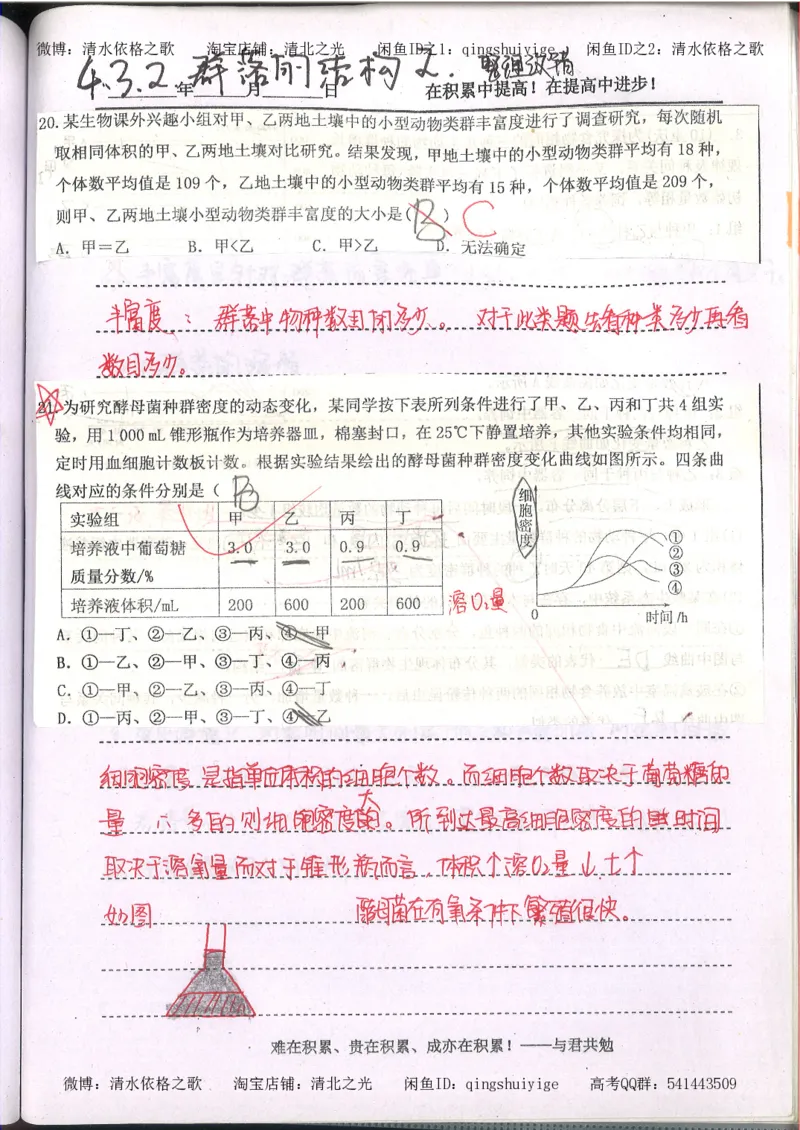 微博：清水依格之歌 淘宝店铺：清北之光 闲鱼ID之1：qingshuiyige 闲鱼ID之2：清水依格之歌
4.3.2 群落的结构2. 整理改错
年 月 日 在积累中提高！在提高中进步！
20.某生物课外兴趣小组对甲、乙两地土壤中的小型动物类群丰富度进行了调查研究，每次随机
取相同体积的甲、乙两地土壤对比研究。结果发现，甲地土壤中的小型动物类群平均有 18 种，
个体数平均值是 109 个，乙地土壤中的小型动物类群平均有 15 种，个体数平均值是 209 个，
则甲、乙两地土壤小型动物类群丰富度的大小是( B ) C
A．甲＝乙 B．甲<乙 C．甲>乙 D．无法确定
丰富度：群落中物种数目的多少。 对于此类题先看种类多少再看
数目多少。
21.为研究酵母菌种群密度的动态变化，某同学按下表所列条件进行了甲、乙、丙和丁共 4 组实
验，用 1 000 mL 锥形瓶作为培养器皿，棉塞封口，在 25℃下静置培养，其他实验条件均相同，
定时用血细胞计数板计数。根据实验结果绘出的酵母菌种群密度变化曲线如图所示。四条曲
线对应的条件分别是 ( B
实验组 甲 乙 丙 丁
培养液中葡萄糖
质量分数/% 3.0 3.0 0.9 0.9
培养液体积/mL 200 600 200 600 溶O2量
细胞密度
①
②
③
④
0 时间/h
A．①—丁、②—乙、③—丙、④—甲
B．①—乙、②—甲、③—丁、④—丙
C．①—甲、②—乙、③—丙、④—丁
D．①—丙、②—甲、③—丁、④—乙
细胞密度是指单位体积的细胞个数。而细胞个数取决于葡萄糖的
量 ∴多的则细胞密度大。所到达最高细胞密度的时间
取决于溶氧量而对于锥形瓶而言，体积↑溶O2量↓t↑
如图 酵母菌在有氧条件下繁殖很快。
难在积累、贵在积累、成亦在积累！——与君共勉
微博：清水依格之歌 淘宝店铺：清北之光 闲鱼ID：qingshuiyige 高考QQ群：541443509